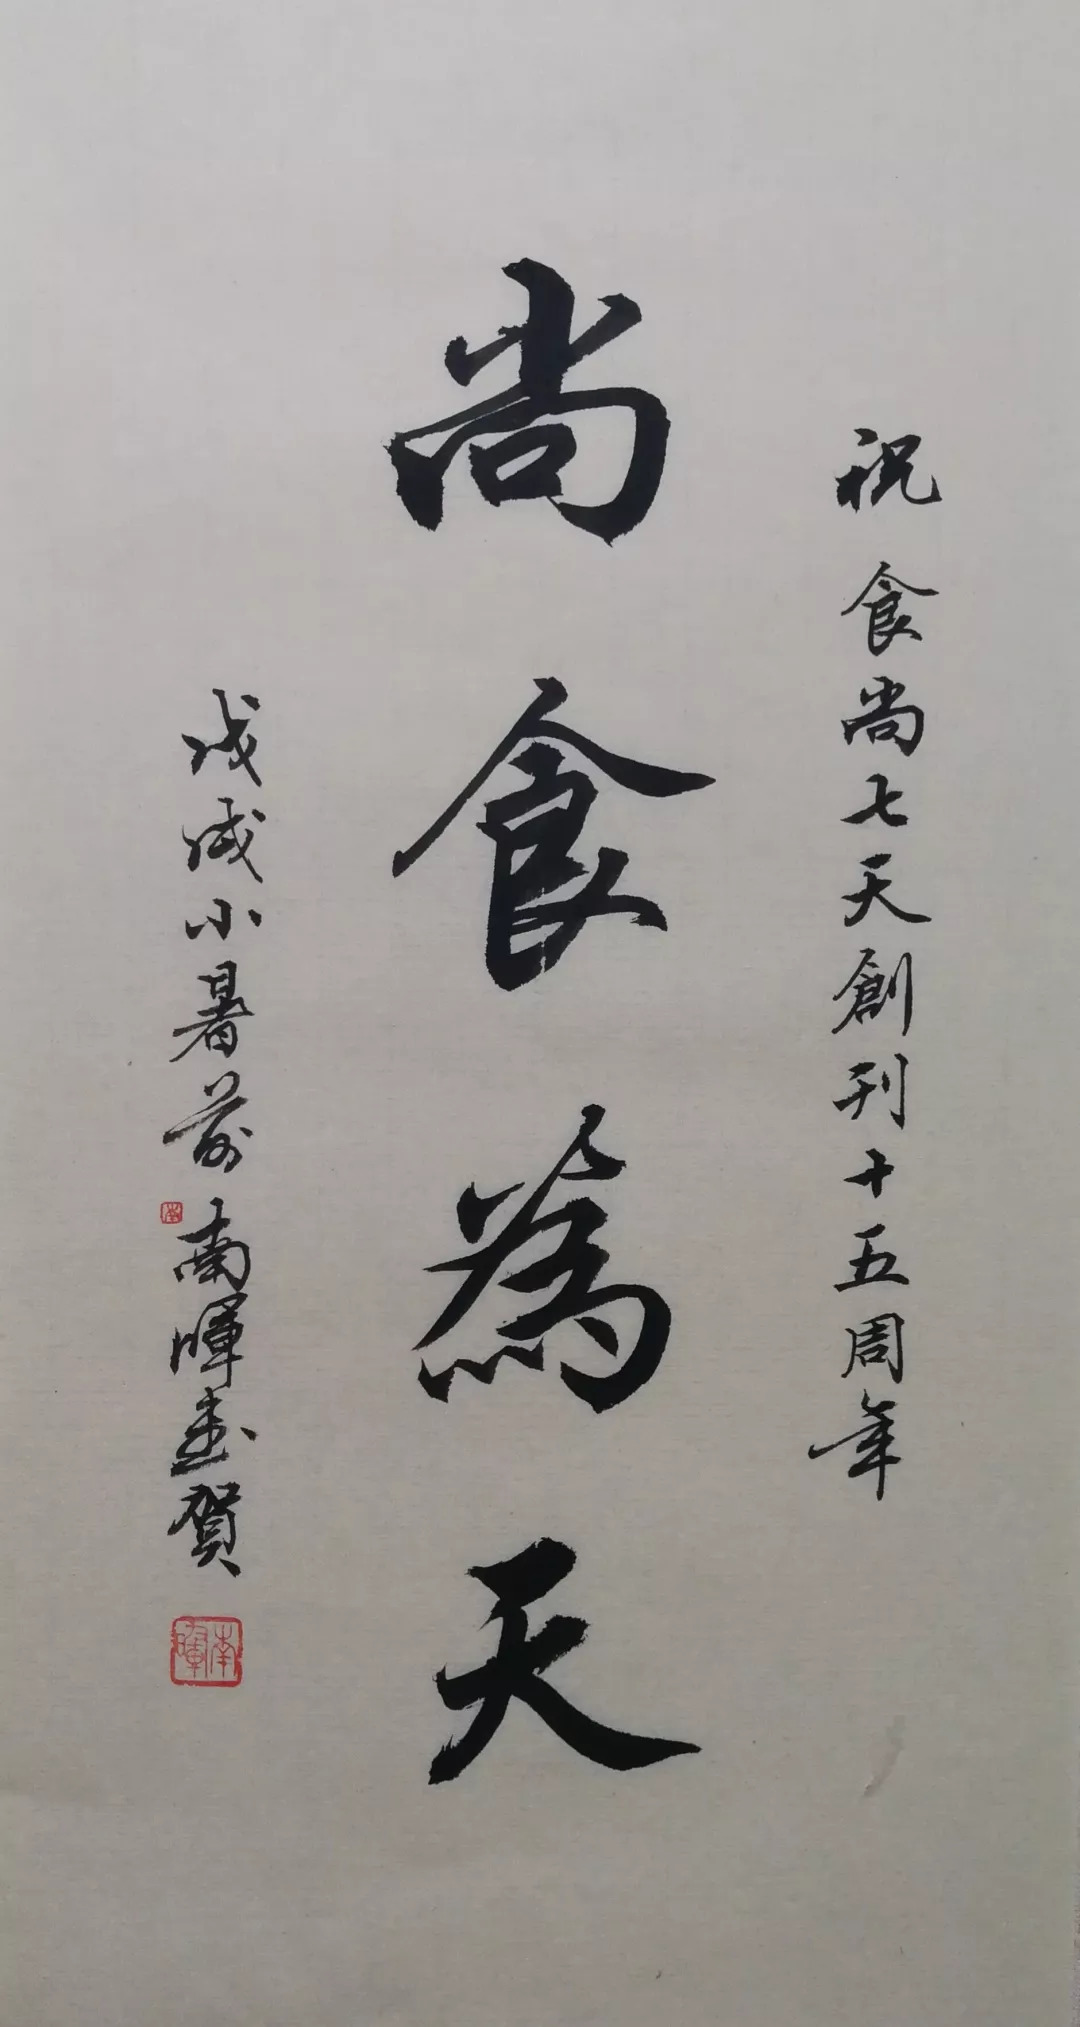 祝食尚七天創刊十五周年
尚食為天
戊戌小暑前南暉書賀
南暉